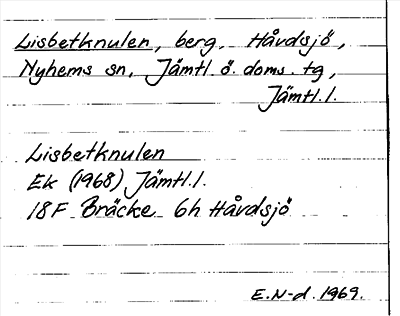 Lisbetknulen, berg, Håvdsjö,
Nyhems sn, Jämtl. ö. doms. tg,
Jämtl. l.
Lisbetknulen
Ek (1968) Jämtl. l.
18F Bräcke 6h Håvdsjö
E.N-d. 1969.